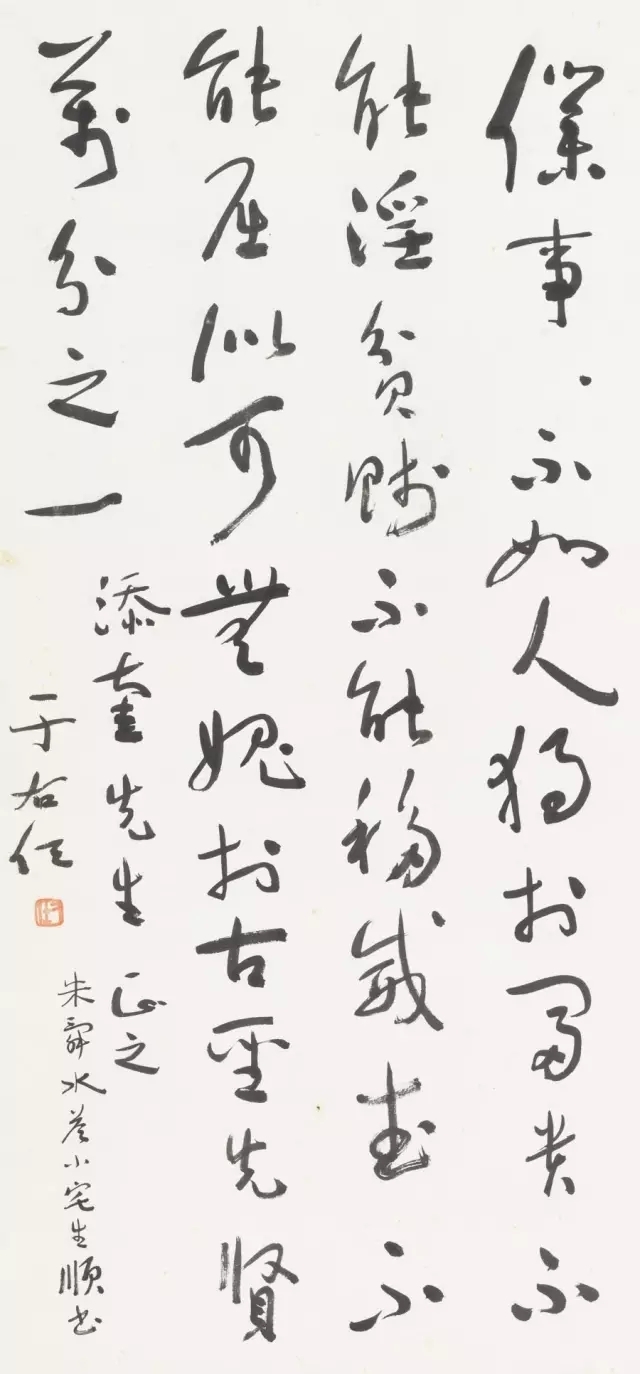 僕事〻不如人獨於富貴不
能淫貧賤不能移威武不
能屈似可無愧於古聖先賢
萬分之一
添奎先生 正之
朱舜水答小宅生順書
于右任